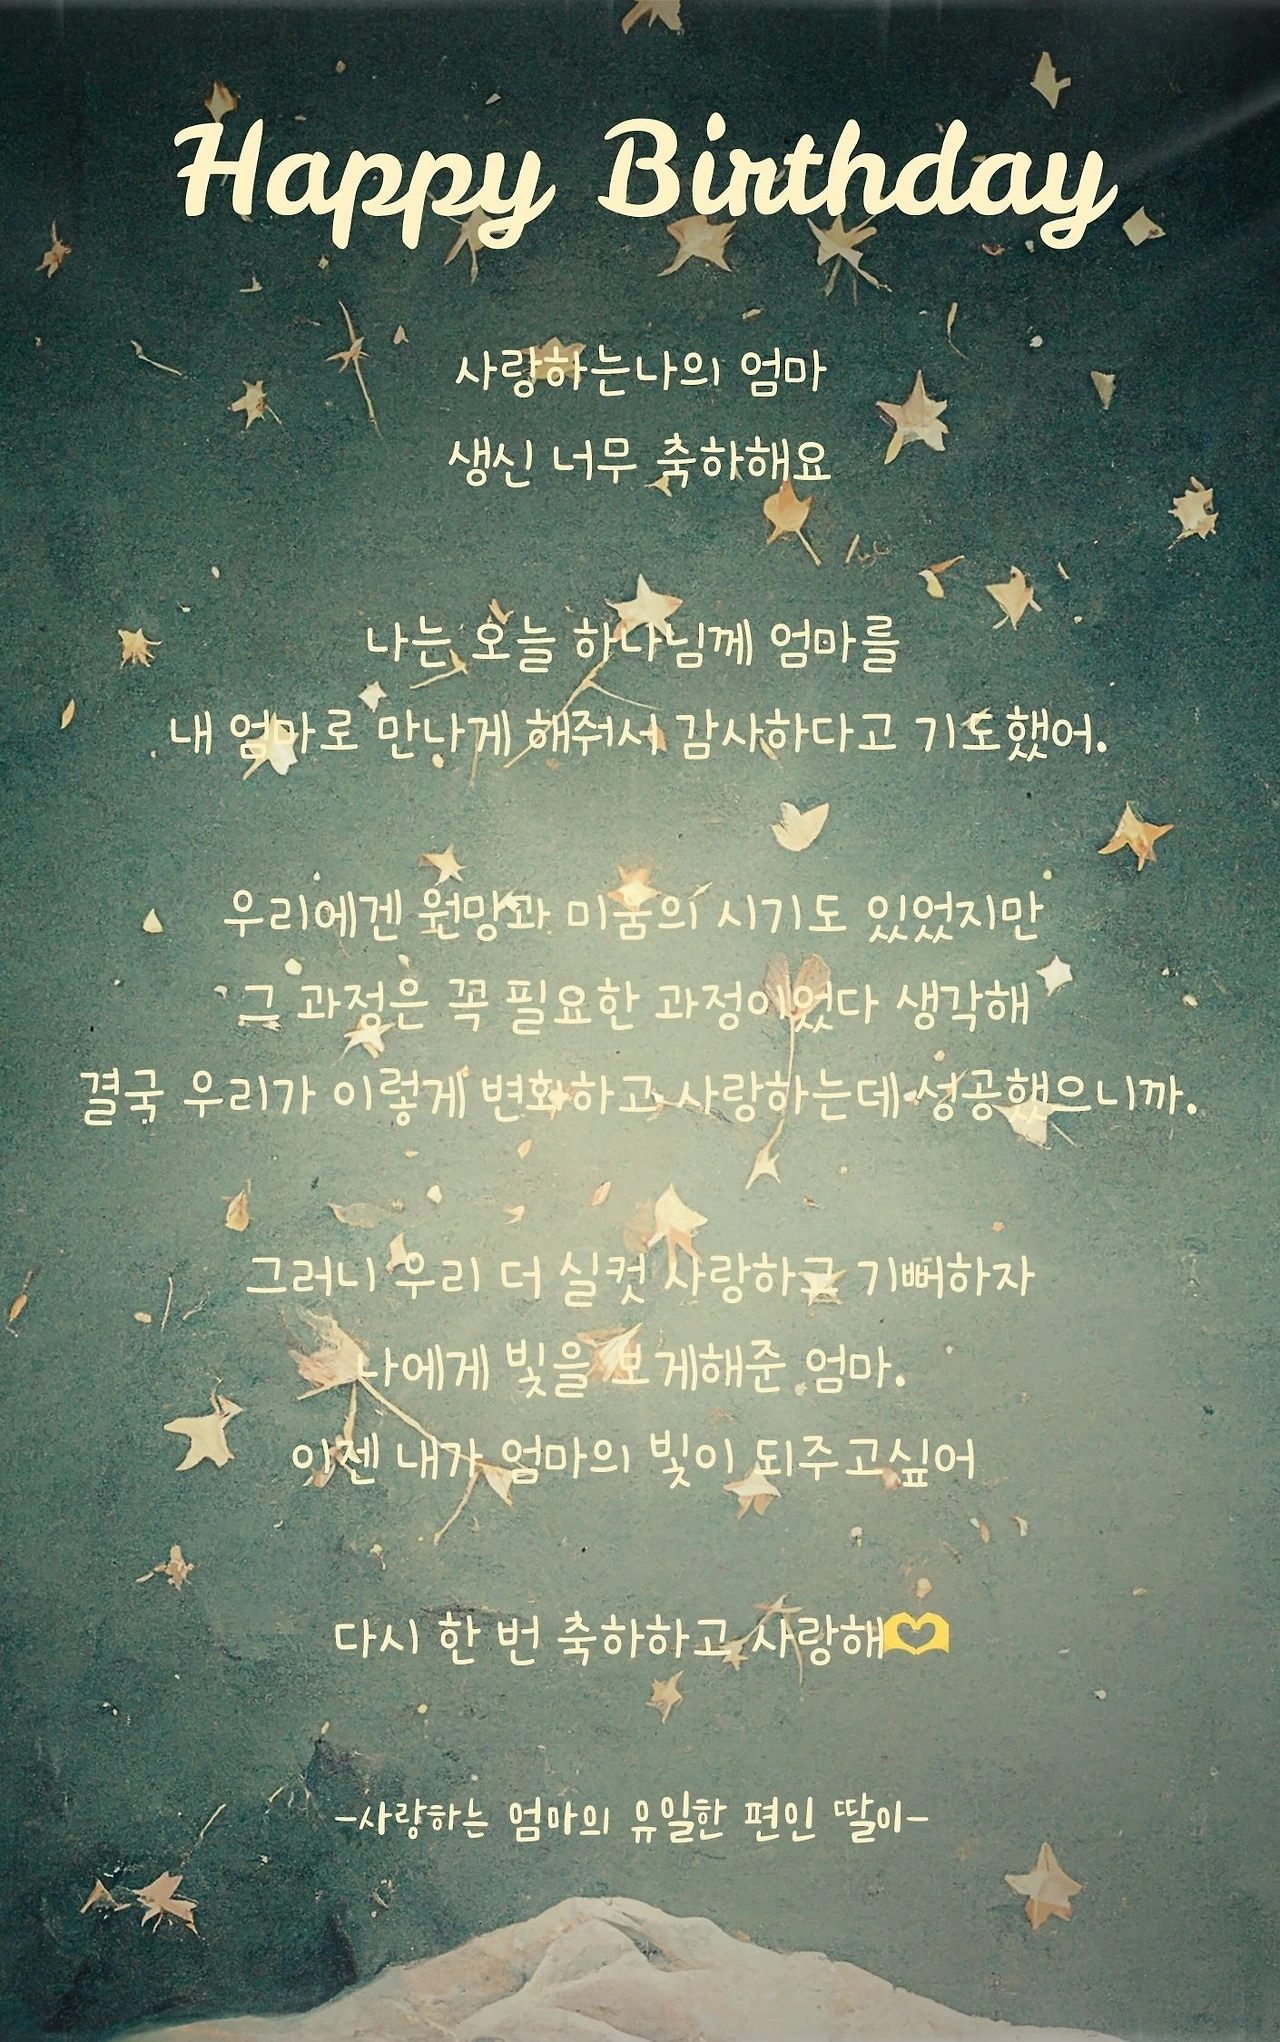 Happy Birthday
사랑하는나의 엄마
생신 너무 축하해요
나는 오늘 하나님께 엄마를
내 엄마로 만나게 해줘서 감사하다고 기도했어.
우리에겐 원망과 미움의 시기도 있었지만
그 과정은 꼭 필요한 과정이었다 생각해
결국 우리가 이렇게 변화하고 사랑하는데 성공했으니까.
그러니 우리 더 실컷 사랑하고 기뻐하자
나에게 빛을 보게해준 엄마.
이젠 내가 엄마의 빛이 되주고싶어
다시 한 번 축하하고 사랑해🫶
-사랑하는 엄마의 유일한 편인 딸이-